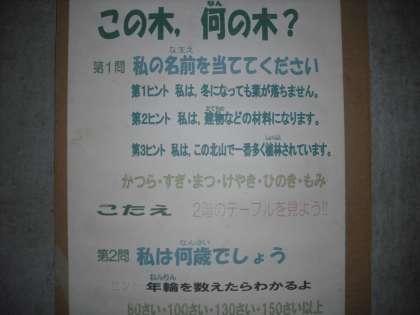 この木，何の木？
第1問 私の名前を当ててください
第1ヒント 私は，冬になっても葉が落ちません。
第2ヒント 私は，建物などの材料になります。
第3ヒント 私は，この北山で一番多く植林されています。
かつら・すぎ・まつ・けやき・ひのき・もみ
こたえ 2階のテーブルを見よう!!
第2問 私は何歳でしょう
ヒント 年輪を数えたらわかるよ
80さい・100さい・130さい・150さい以上